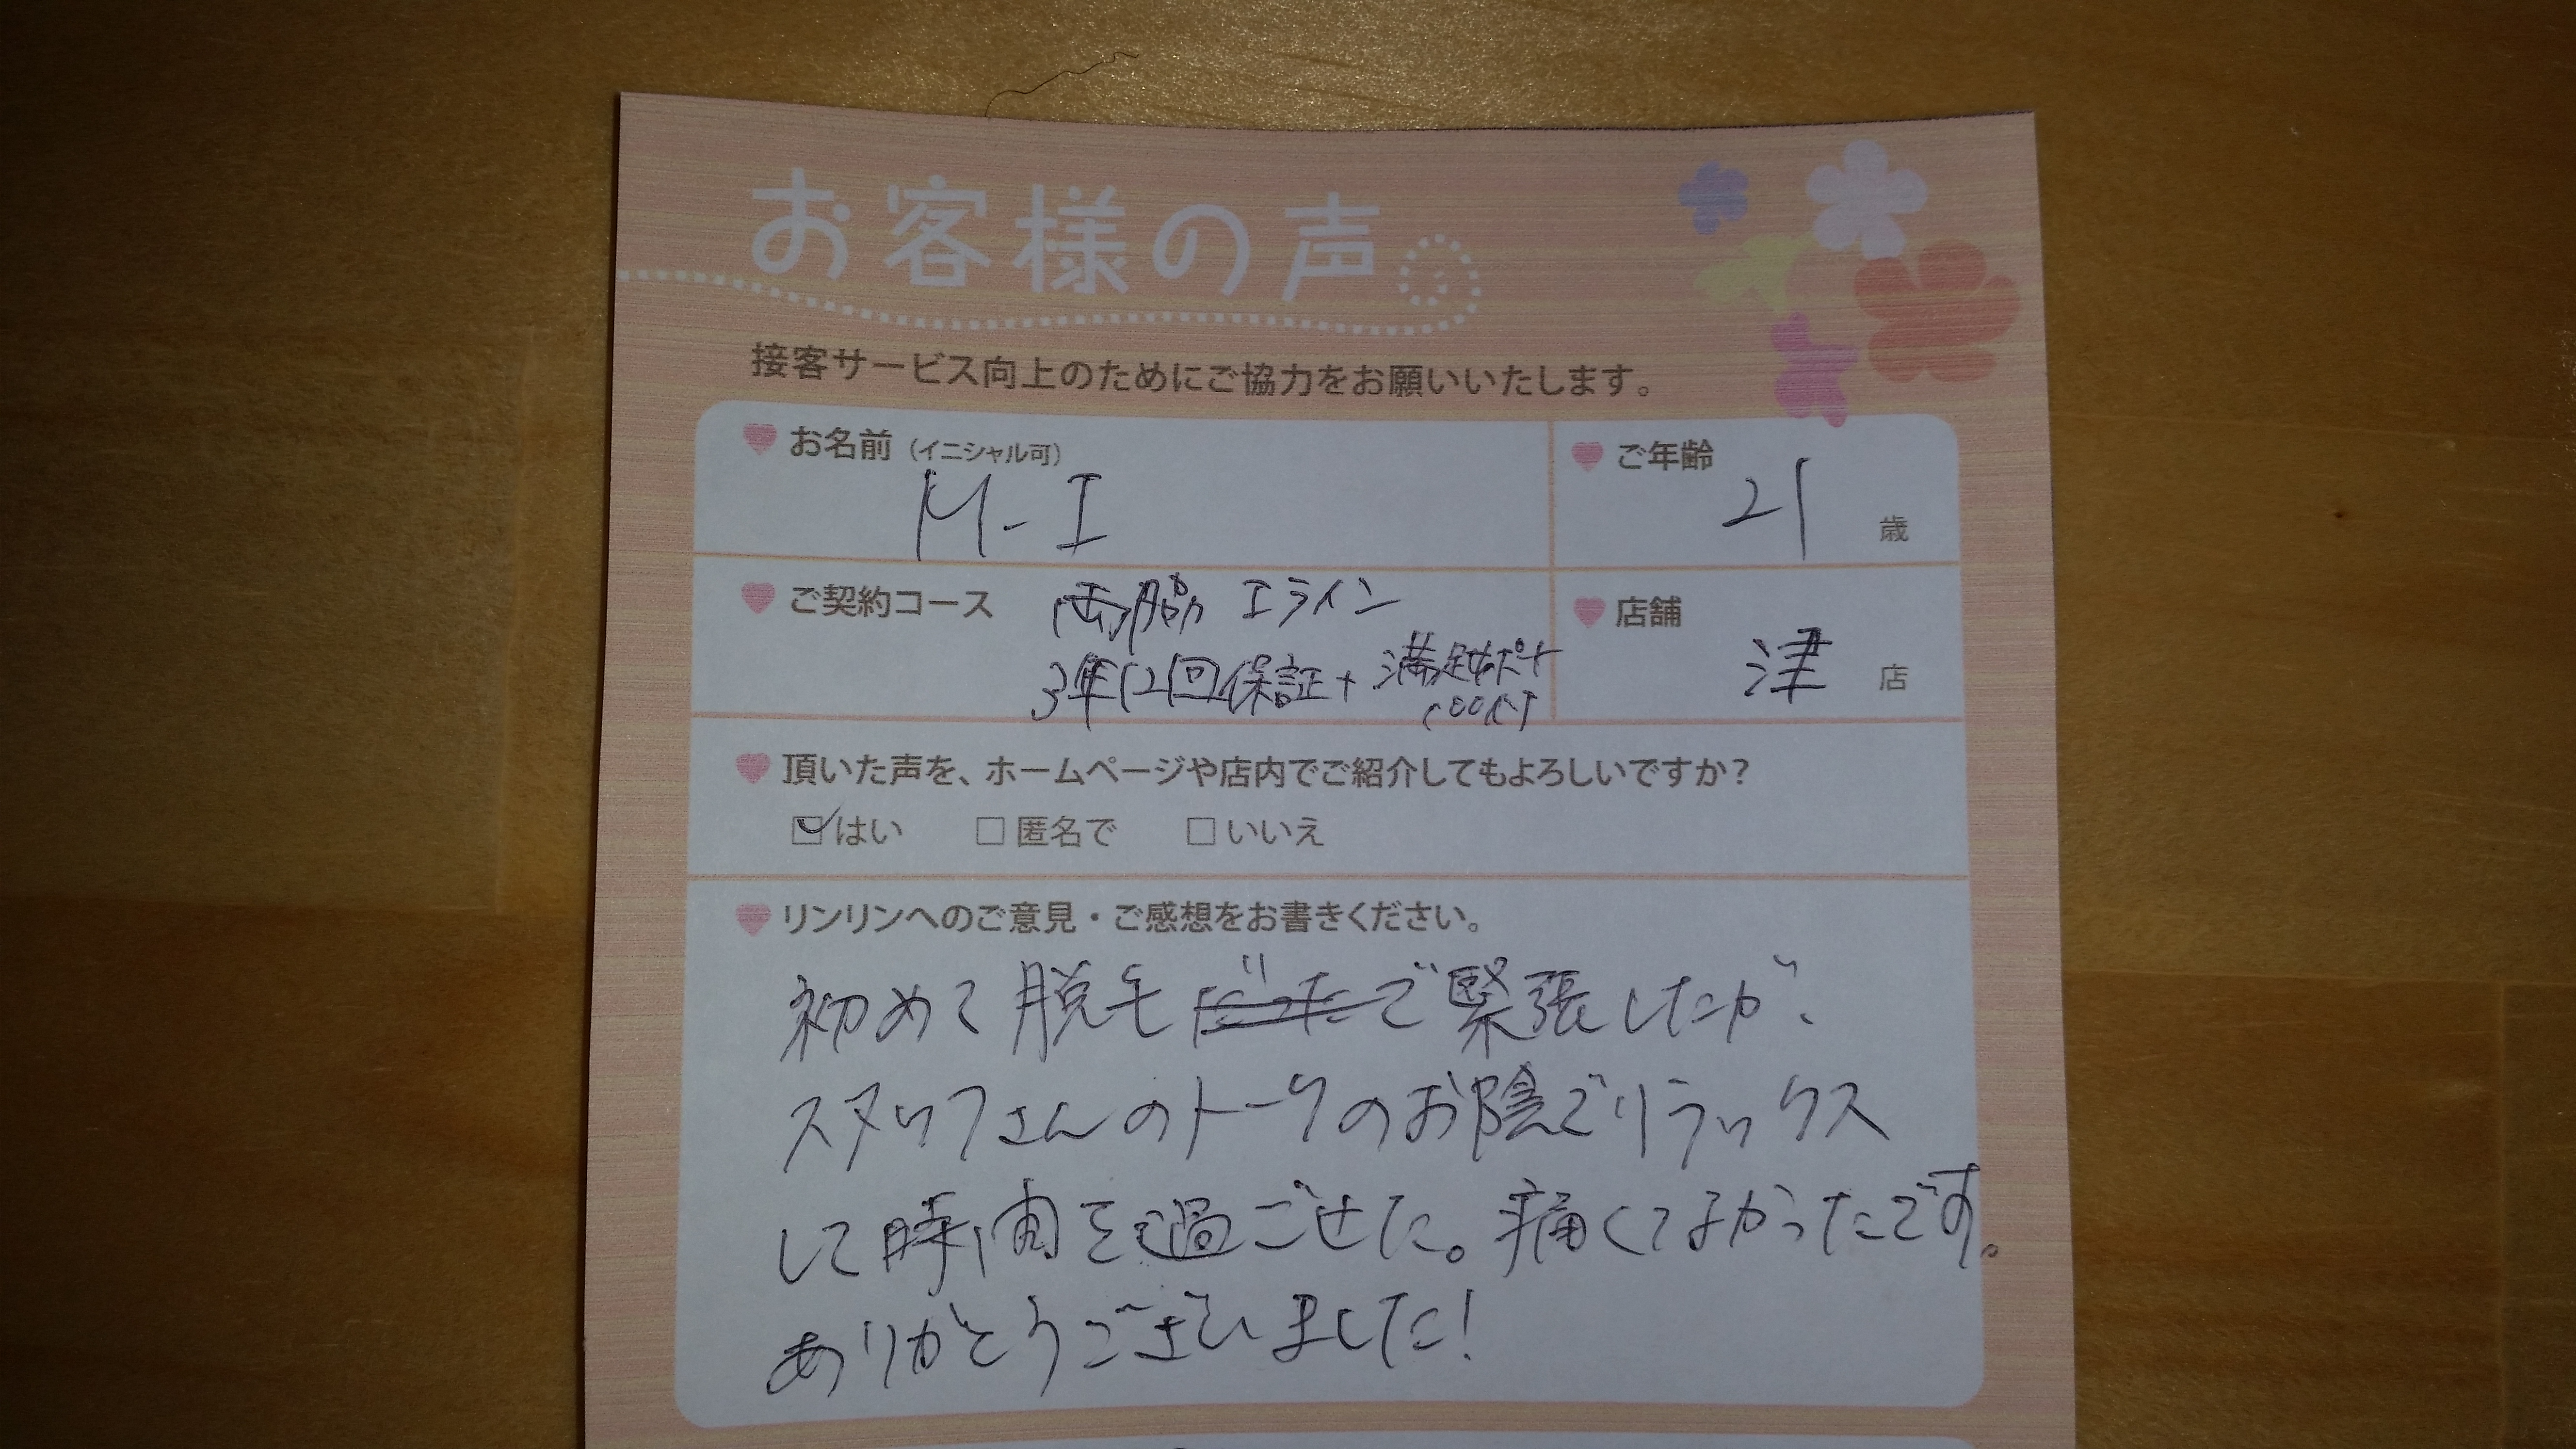 お客様の声
接客サービス向上のためにご協力をお願いいたします。
お名前（イニシャル可）
M-I
ご年齢
21歳
ご契約コース 両脇 Iライン
3年12回保証+満足サポート
店舗
津店
頂いた声を、ホームページや店内でご紹介してもよろしいですか？
はい 匿名で いいえ
リンリンへのご意見・ご感想をお書きください。
初めて脱毛だったで緊張したが、
スタッフさんのトークのお陰でリラックス
して時間を過ごせた。痛くてよかったです。
ありがとうございました！